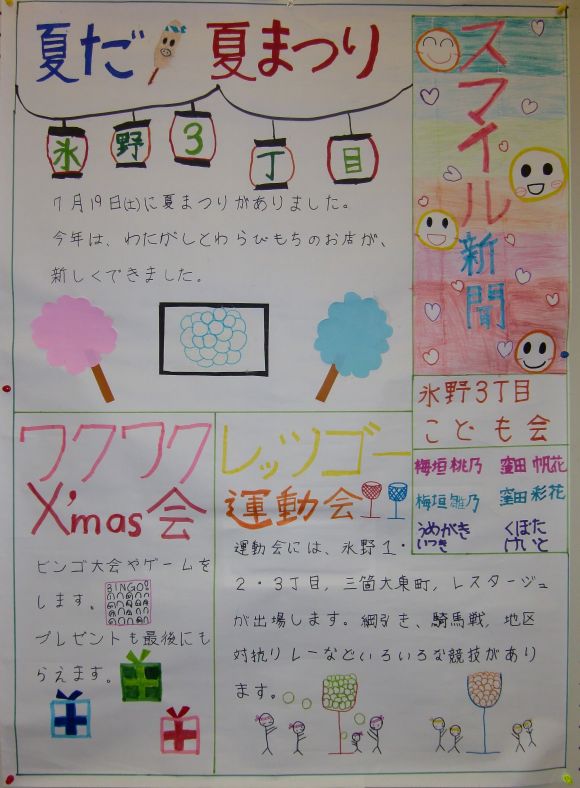 スマイル新聞
氷野3丁目
こども会
梅垣 桃乃 窪田 帆花
梅垣 雛乃 窪田 彩花
うめがき くぼた
いつき けいと
夏だ 夏まつり
氷野3丁目
7月19日(土)に夏まつりがありました。
今年は、わたがしとわらびもちのお店が、
新しくできました。
ワクワク
X'mas会
ビンゴ大会やゲームを
します。
BINGO!
プレゼントも最後にも
らえます。
レッツゴー
運動会
運動会には、氷野1・
2・3丁目，三箇大東町，レスタージュ
が出場します。綱引き、騎馬戦，地区
対抗リレーなどいろいろな競技があり
ます。